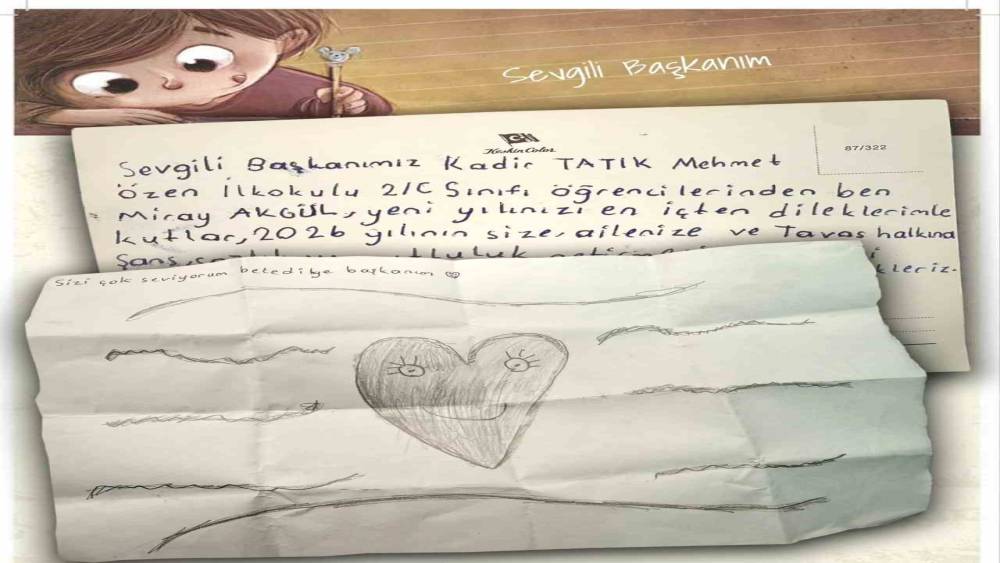 Sevgili Başkanım
Keskin Color
87/322
Sevgili Başkanımız Kadir TATIK Mehmet
Özen İlkokulu 2/C Sınıfı öğrencilerinden ben
Miray AKGÜL, yeni yılınızı en içten dileklerimle
kutlar, 2026 yılının size, ailenize ve Tavas halkına
Şans,
Sizi çok seviyorum belediye başkanım